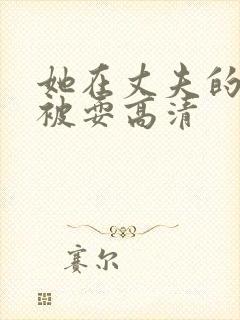 她在丈夫的
被耍高清
赛尔